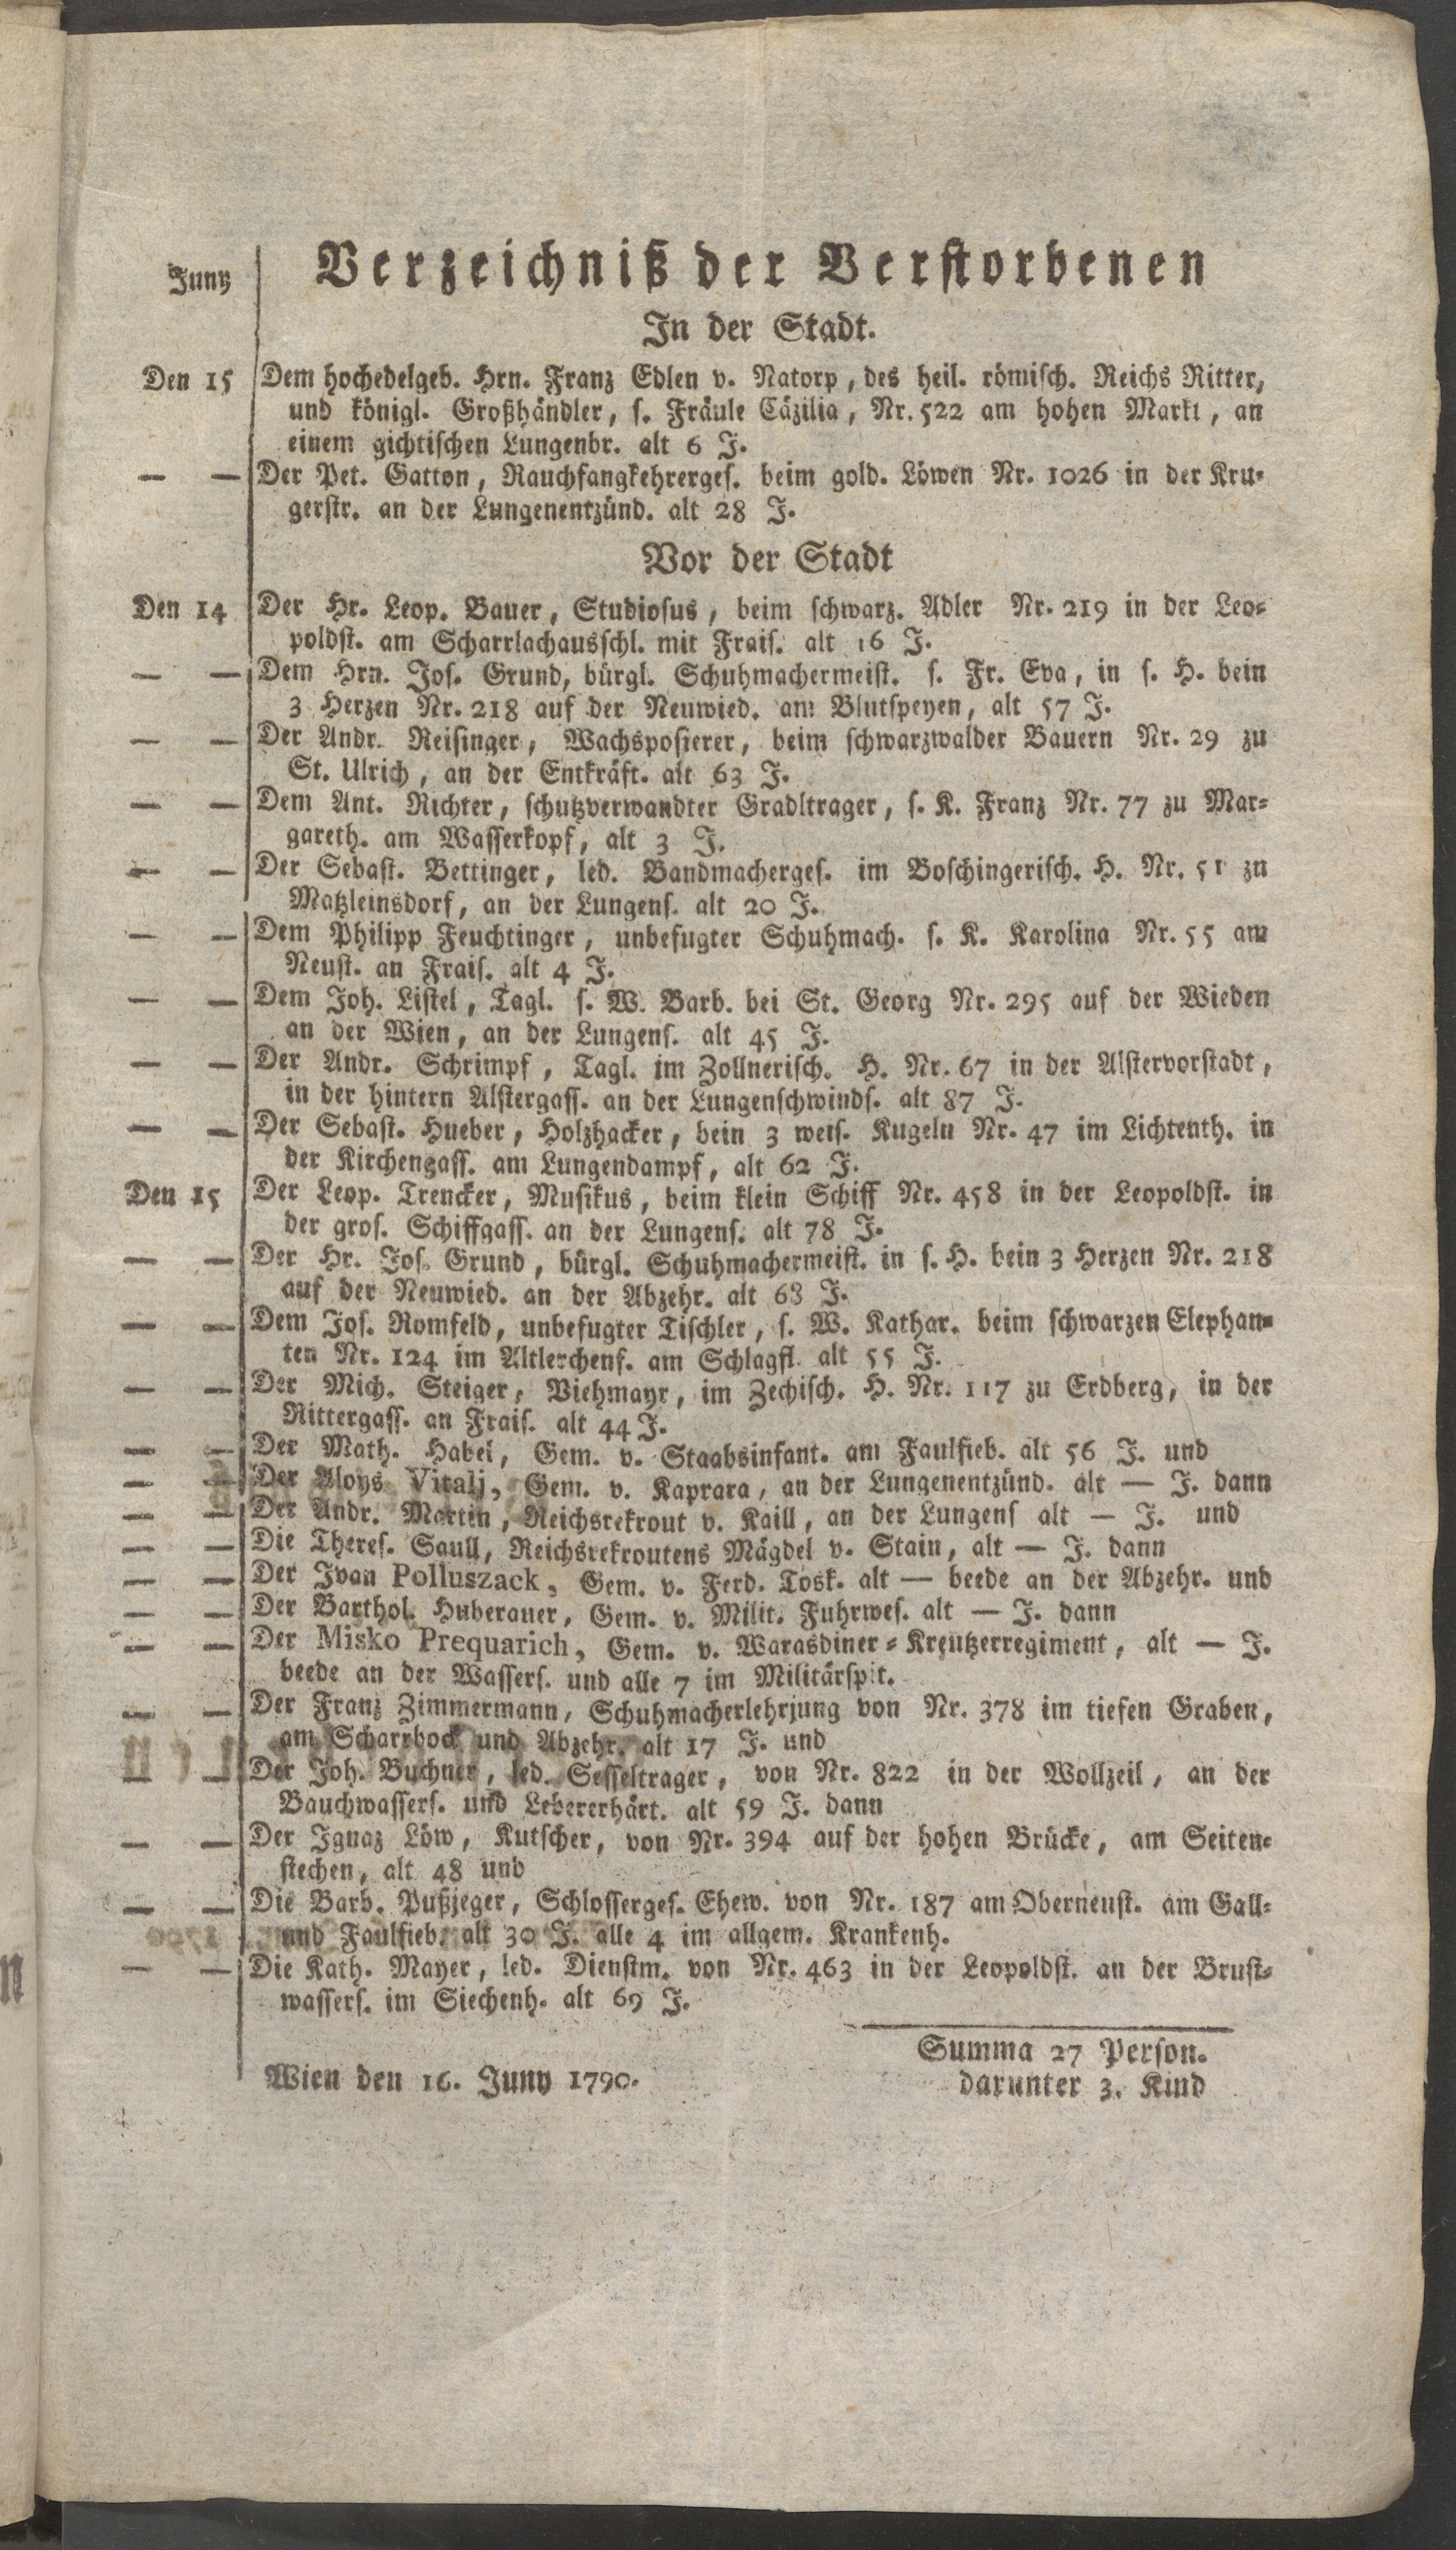 Juny
Verzeichniß der Verstorbenen
In der Stadt.
Den 15 Dem hochedelgeb. Hrn. Franz Edlen v. Natorp, des heil. römisch. Reichs Ritter,
und königl. Großhändler, s. Fräule Cäzilia, Nr. 522 am hohen Markt, an
einem gichtischen Lungenbr. alt 6 J.
— — Der Pet. Gatton, Rauchfangkehrerges. beim gold. Löwen Nr. 1026 in der Kru-
gerstr. an der Lungenentzünd. alt 28 J.
Vor der Stadt
Den 14 Der Hr. Leop. Bauer, Studiosus, beim schwarz. Adler Nr. 219 in der Leo-
poldst. am Scharrlachausschl. mit Frais. alt 16 J.
— — Dem Hrn. Jos. Grund, bürgl. Schuhmachermeist. s. Fr. Eva, in s. H. bein
3 Herzen Nr. 218 auf der Neuwied. am Blutspeyen, alt 57 J.
— — Der Andr. Reisinger, Wachsposierer, beim schwarzwalder Bauern Nr. 29 zu
St. Ulrich, an der Entkräft. alt 63 J.
— — Dem Ant. Richter, schutzverwandter Gradltrager, s. K. Franz Nr. 77 zu Mar-
gareth. am Wasserkopf, alt 3 J.
— — Der Sebast. Bettinger, led. Bandmacherges. im Boschingerisch. H. Nr. 51 zu
Matzleinsdorf, an der Lungens. alt 20 J.
— — Dem Philipp Feuchtinger, unbefugter Schuhmach. s. K. Karolina Nr. 55 am
Neust. an Frais. alt 4 J.
— — Dem Joh. Listel, Tagl. s. W. Barb. bei St. Georg Nr. 295 auf der Wieden
an der Wien, an der Lungens. alt 45 J.
— — Der Andr. Schrimpf, Tagl. im Zollnerisch. H. Nr. 67 in der Alstervorstadt,
in der hintern Alstergass. an der Lungenschwinds. alt 87 J.
— — Der Sebast. Hueber, Holzhacker, bein 3 weis. Kugeln Nr. 47 im Lichtenth. in
der Kirchengass. am Lungendampf, alt 62 J.
Den 15 Der Leop. Trencker, Musikus, beim klein Schiff Nr. 458 in der Leopoldst. in
der gros. Schiffgass. an der Lungens. alt 78 J.
— — Der Hr. Jos. Grund, bürgl. Schuhmachermeist. in s. H. bein 3 Herzen Nr. 218
auf der Neuwied. an der Abzehr. alt 68 J.
— — Dem Jos. Romfeld, unbefugter Tischler, s. W. Kathar. beim schwarzen Elephan-
ten Nr. 124 im Altlerchenf. am Schlagfl. alt 55 J.
— — Der Mich. Steiger, Viehmayr, im Zechisch. H. Nr. 117 zu Erdberg, in der
Rittergass. an Frais. alt 44 J.
— — Der Math. Habel, Gem. v. Staabsinfant. am Faulfieb. alt 56 J. und
— — Der Aloys Vitalj, Gem. v. Kaprara, an der Lungenentzünd. alt — J. dann
— — Der Andr. Martin, Reichsrekrout v. Kaill, an der Lungens alt — J. und
— — Die Theres. Saull, Reichsrekroutens Mägdel v. Stain, alt — J. dann
— — Der Ivan Polluszack, Gem. v. Ferd. Tosk. alt — beede an der Abzehr. und
— — Der Barthol. Huberauer, Gem. v. Milit. Fuhrwes. alt — J. dann
— — Der Misko Prequarich, Gem. v. Warasdiner-Kreutzerregiment, alt — J.
beede an der Wassers. und alle 7 im Militärspit.
— — Der Franz Zimmermann, Schuhmacherlehrjung von Nr. 378 im tiefen Graben,
am Scharrbock und Abzehr. alt 17 J. und
— — Der Joh. Buchner, led. Sesseltrager, von Nr. 822 in der Wollzeil, an der
Bauchwassers. und Lebererhärt. alt 59 J. dann
— — Der Ignaz Löw, Kutscher, von Nr. 394 auf der hohen Brücke, am Seiten-
stechen, alt 48 und
— — Die Barb. Pußjeger, Schlosserges. Ehew. von Nr. 187 am Oberneust. am Gall-
und Faulfieb. alt 30 J. alle 4 im allgem. Krankenh.
— — Die Kath. Mayer, led. Dienstm. von Nr. 463 in der Leopoldst. an der Brust-
wassers. im Siechenh. alt 69 J.
Summa 27 Person.
darunter 3. Kind
Wien den 16. Juny 1790.